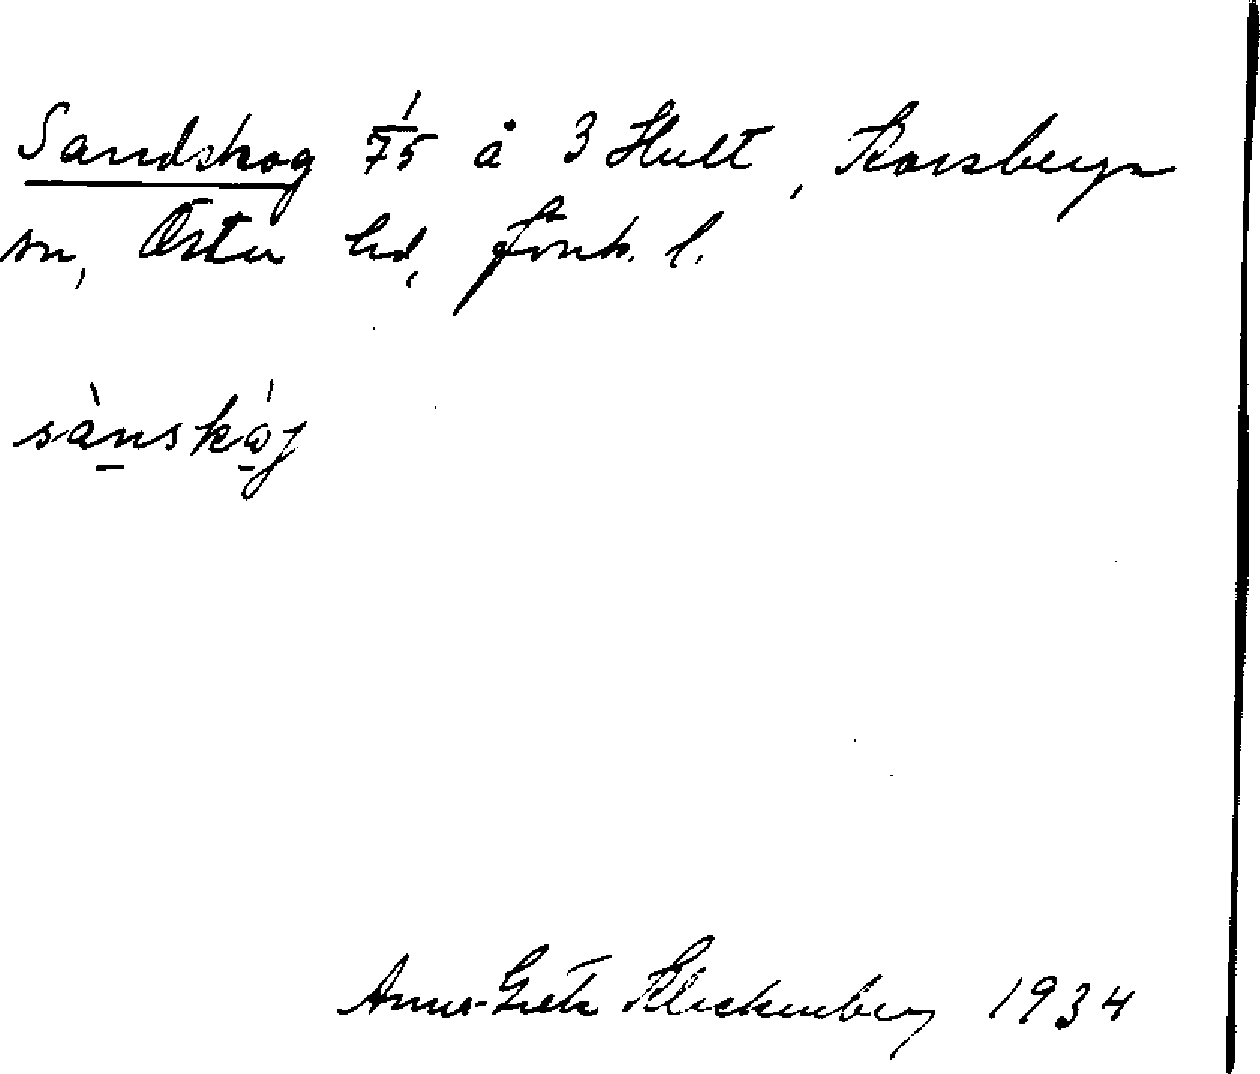 Sandskog 1/75 å 3 Hult, Korsberga
sn, Östra hd, Jönk. l.
sànskòg
Anna-Greta Kleckenberg 1934